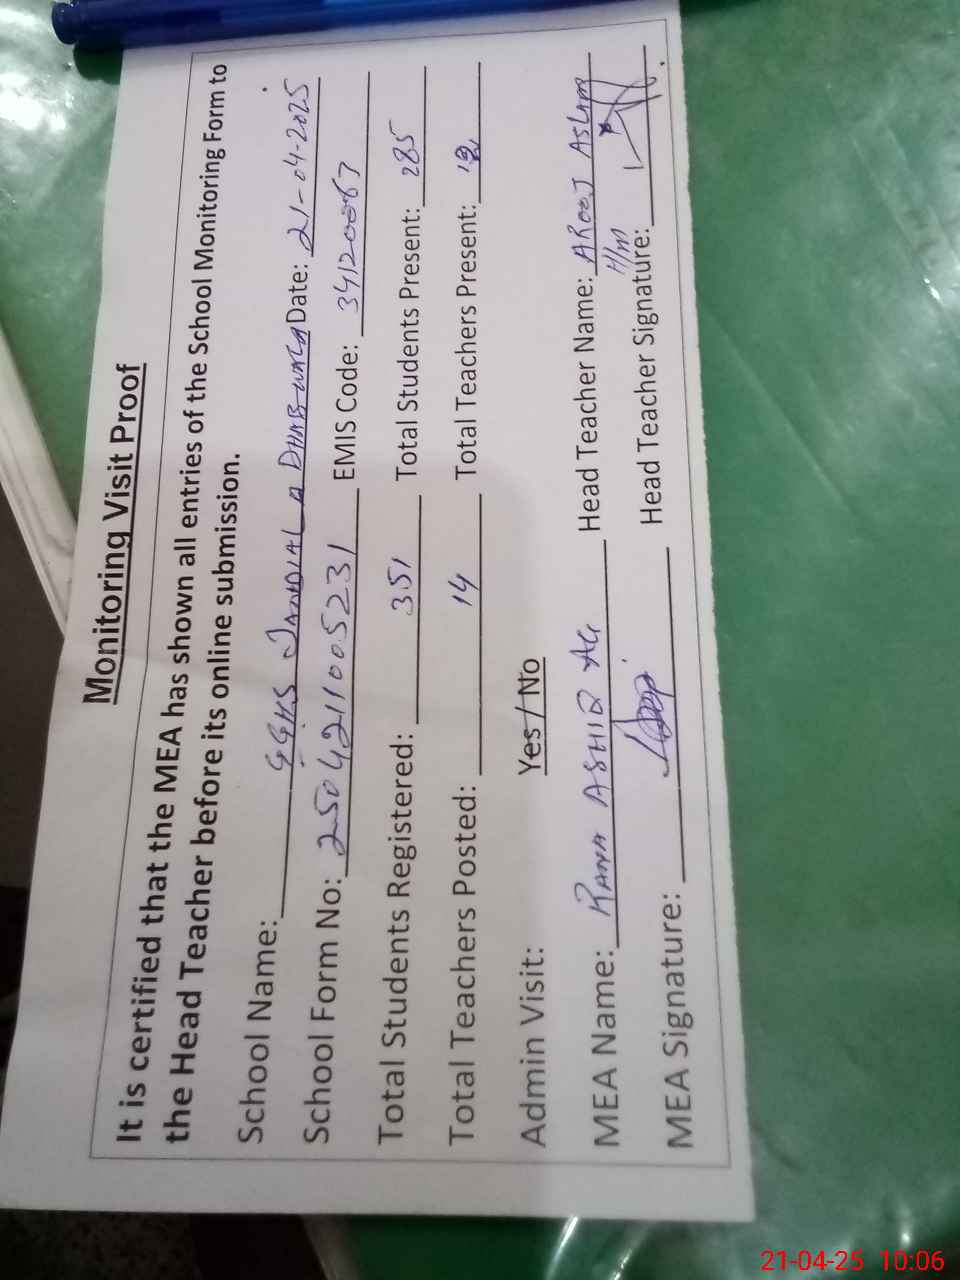 Monitoring Visit Proof
It is certified that the MEA has shown all entries of the School Monitoring Form to
the Head Teacher before its online submission.
School Name: GGHS JANDIALA DHABWALA Date: 21-04-2025
School Form No: 2504211005231 EMIS Code: 34120067
Total Students Registered: 351 Total Students Present: 285
Total Teachers Posted: 14 Total Teachers Present:
Admin Visit: Yes / No
MEA Name: RANA ASHIQ Ali Head Teacher Name: AROOJ ASLAM
H/M
MEA Signature: Head Teacher Signature:
21-04-25 10:06